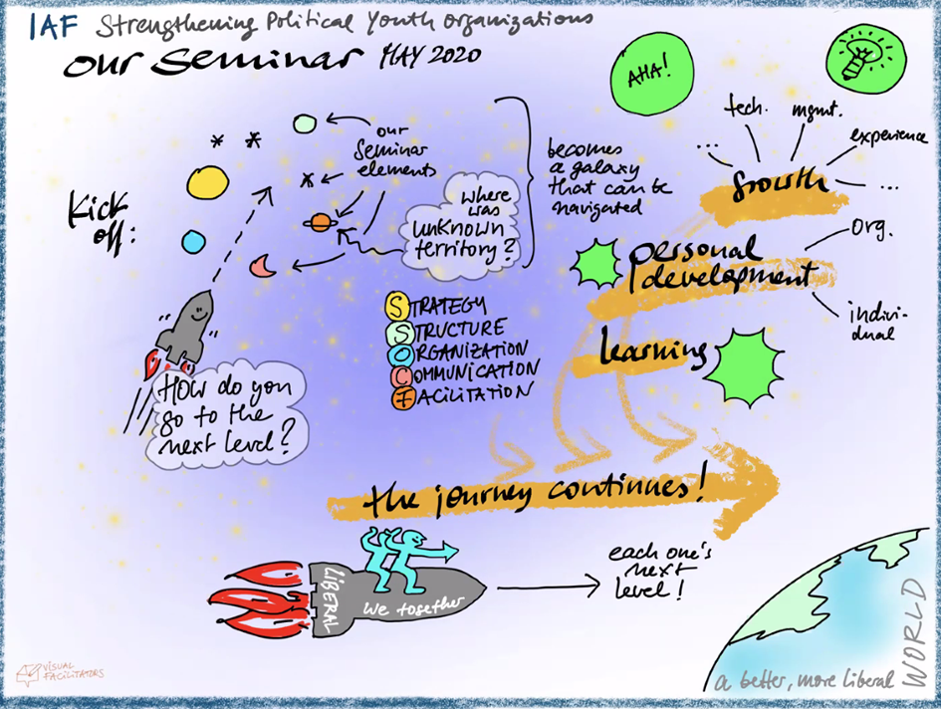 IAF Strengthening Political Youth Organizations
our Seminar MAY 2020
AHA!
Kick
off:
our
seminar
elements
where
was
unknown
territory?
becomes
a galaxy
that can be
navigated
...
tech.
mgmt.
experience
...
Growth
personal
development
org.
indivi-
dual
learning
STRATEGY
STRUCTURE
ORGANIZATION
COMMUNICATION
FACILITATION
How do you
go to the
next level?
the journey continues!
LIBERAL
We together
each one's
next
level!
a better, more liberal
WORLD
VISUAL
FACILITATORS